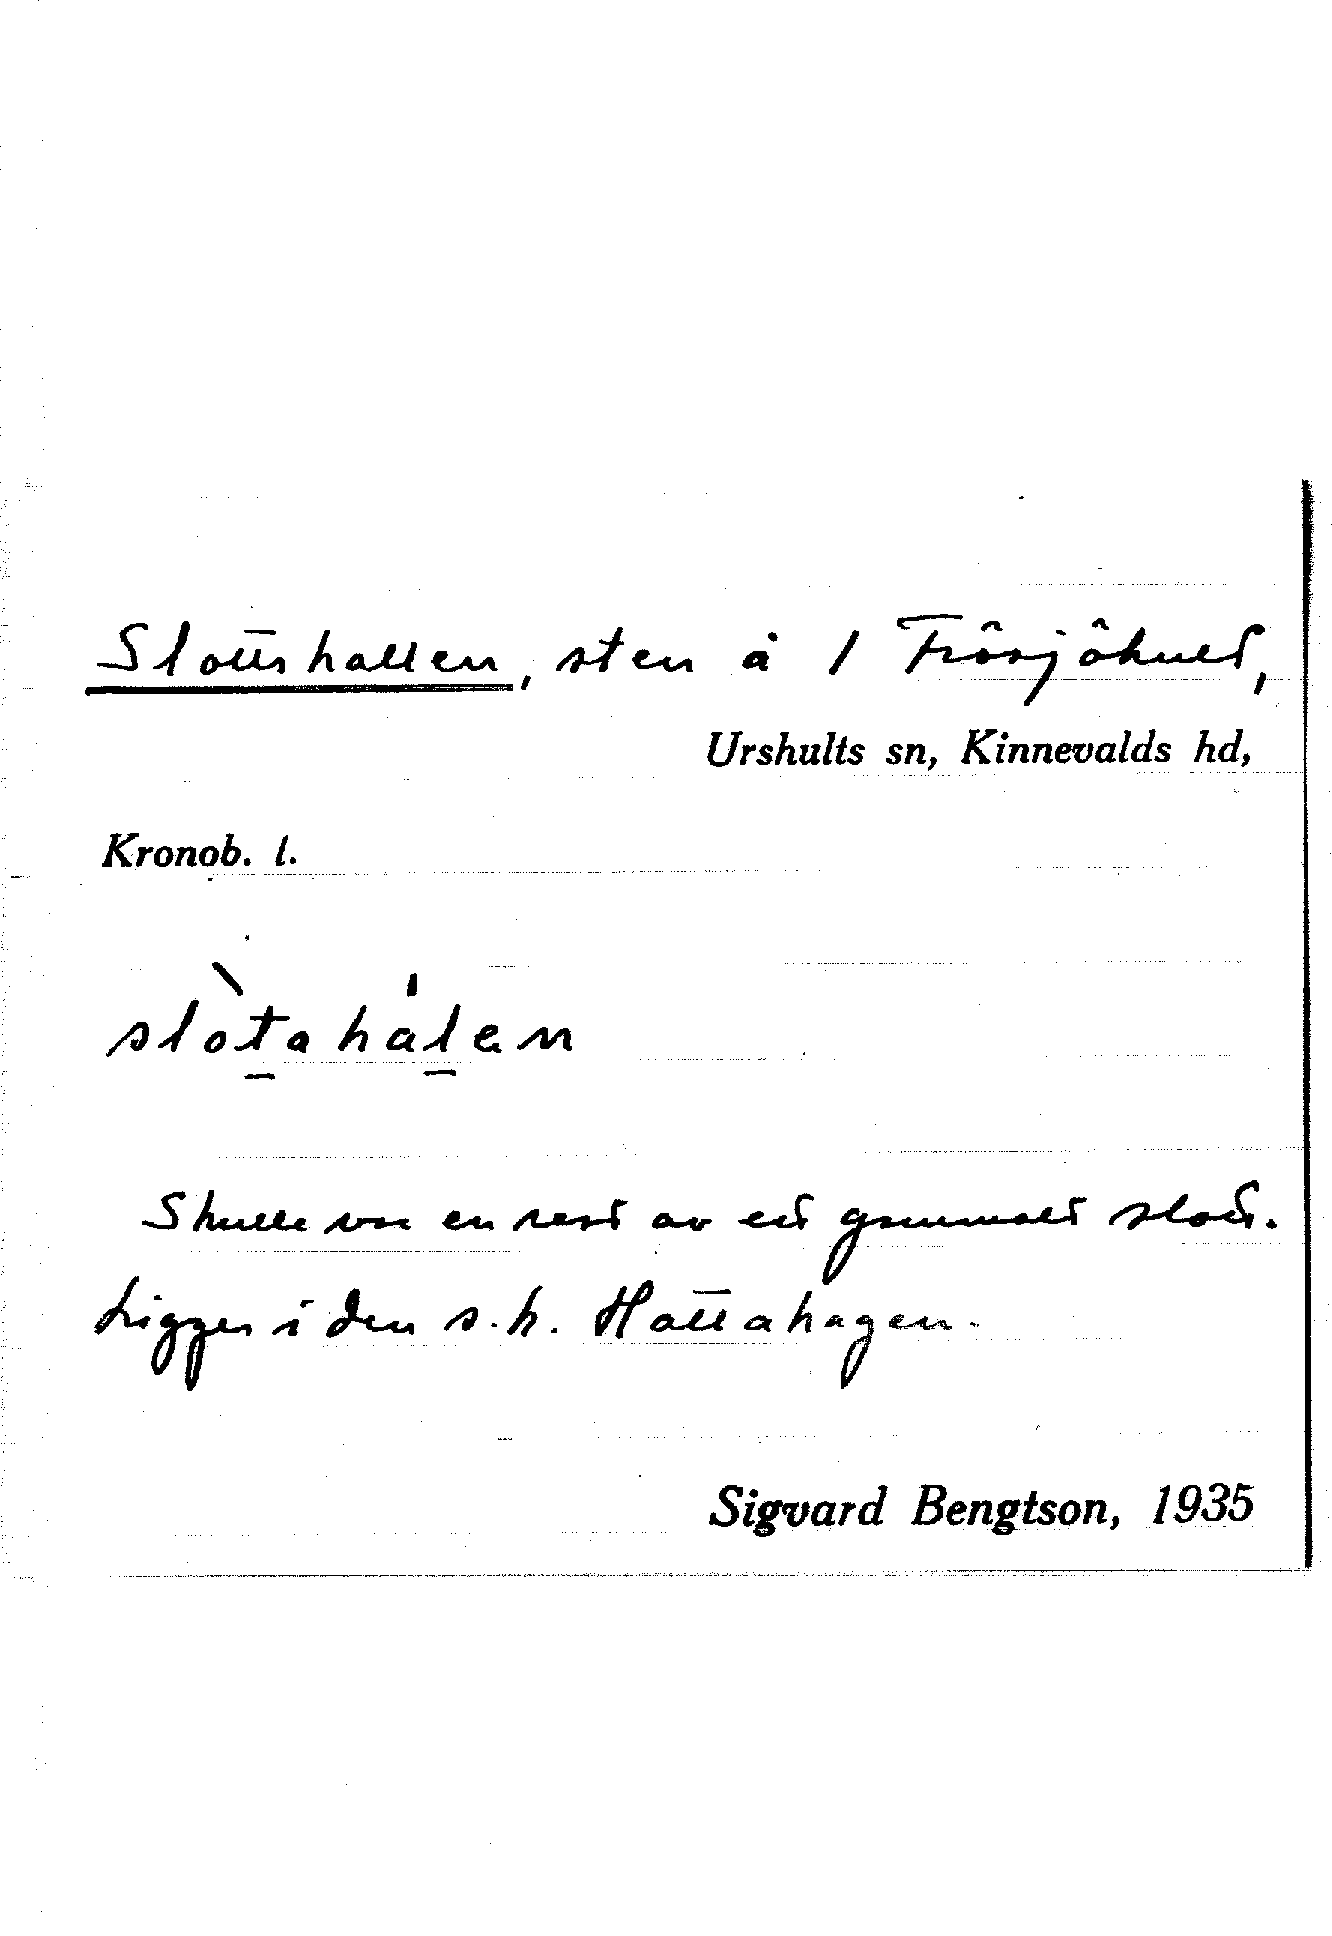 Slottshallen, sten å 1
Urshults sn, Kinnevalds hd,
Kronob. l.
slòtahálen
Skulle va en rest av ett gammalt slott.
Ligger i den s.k. Hattahagen.
Sigvard Bengtson, 1935